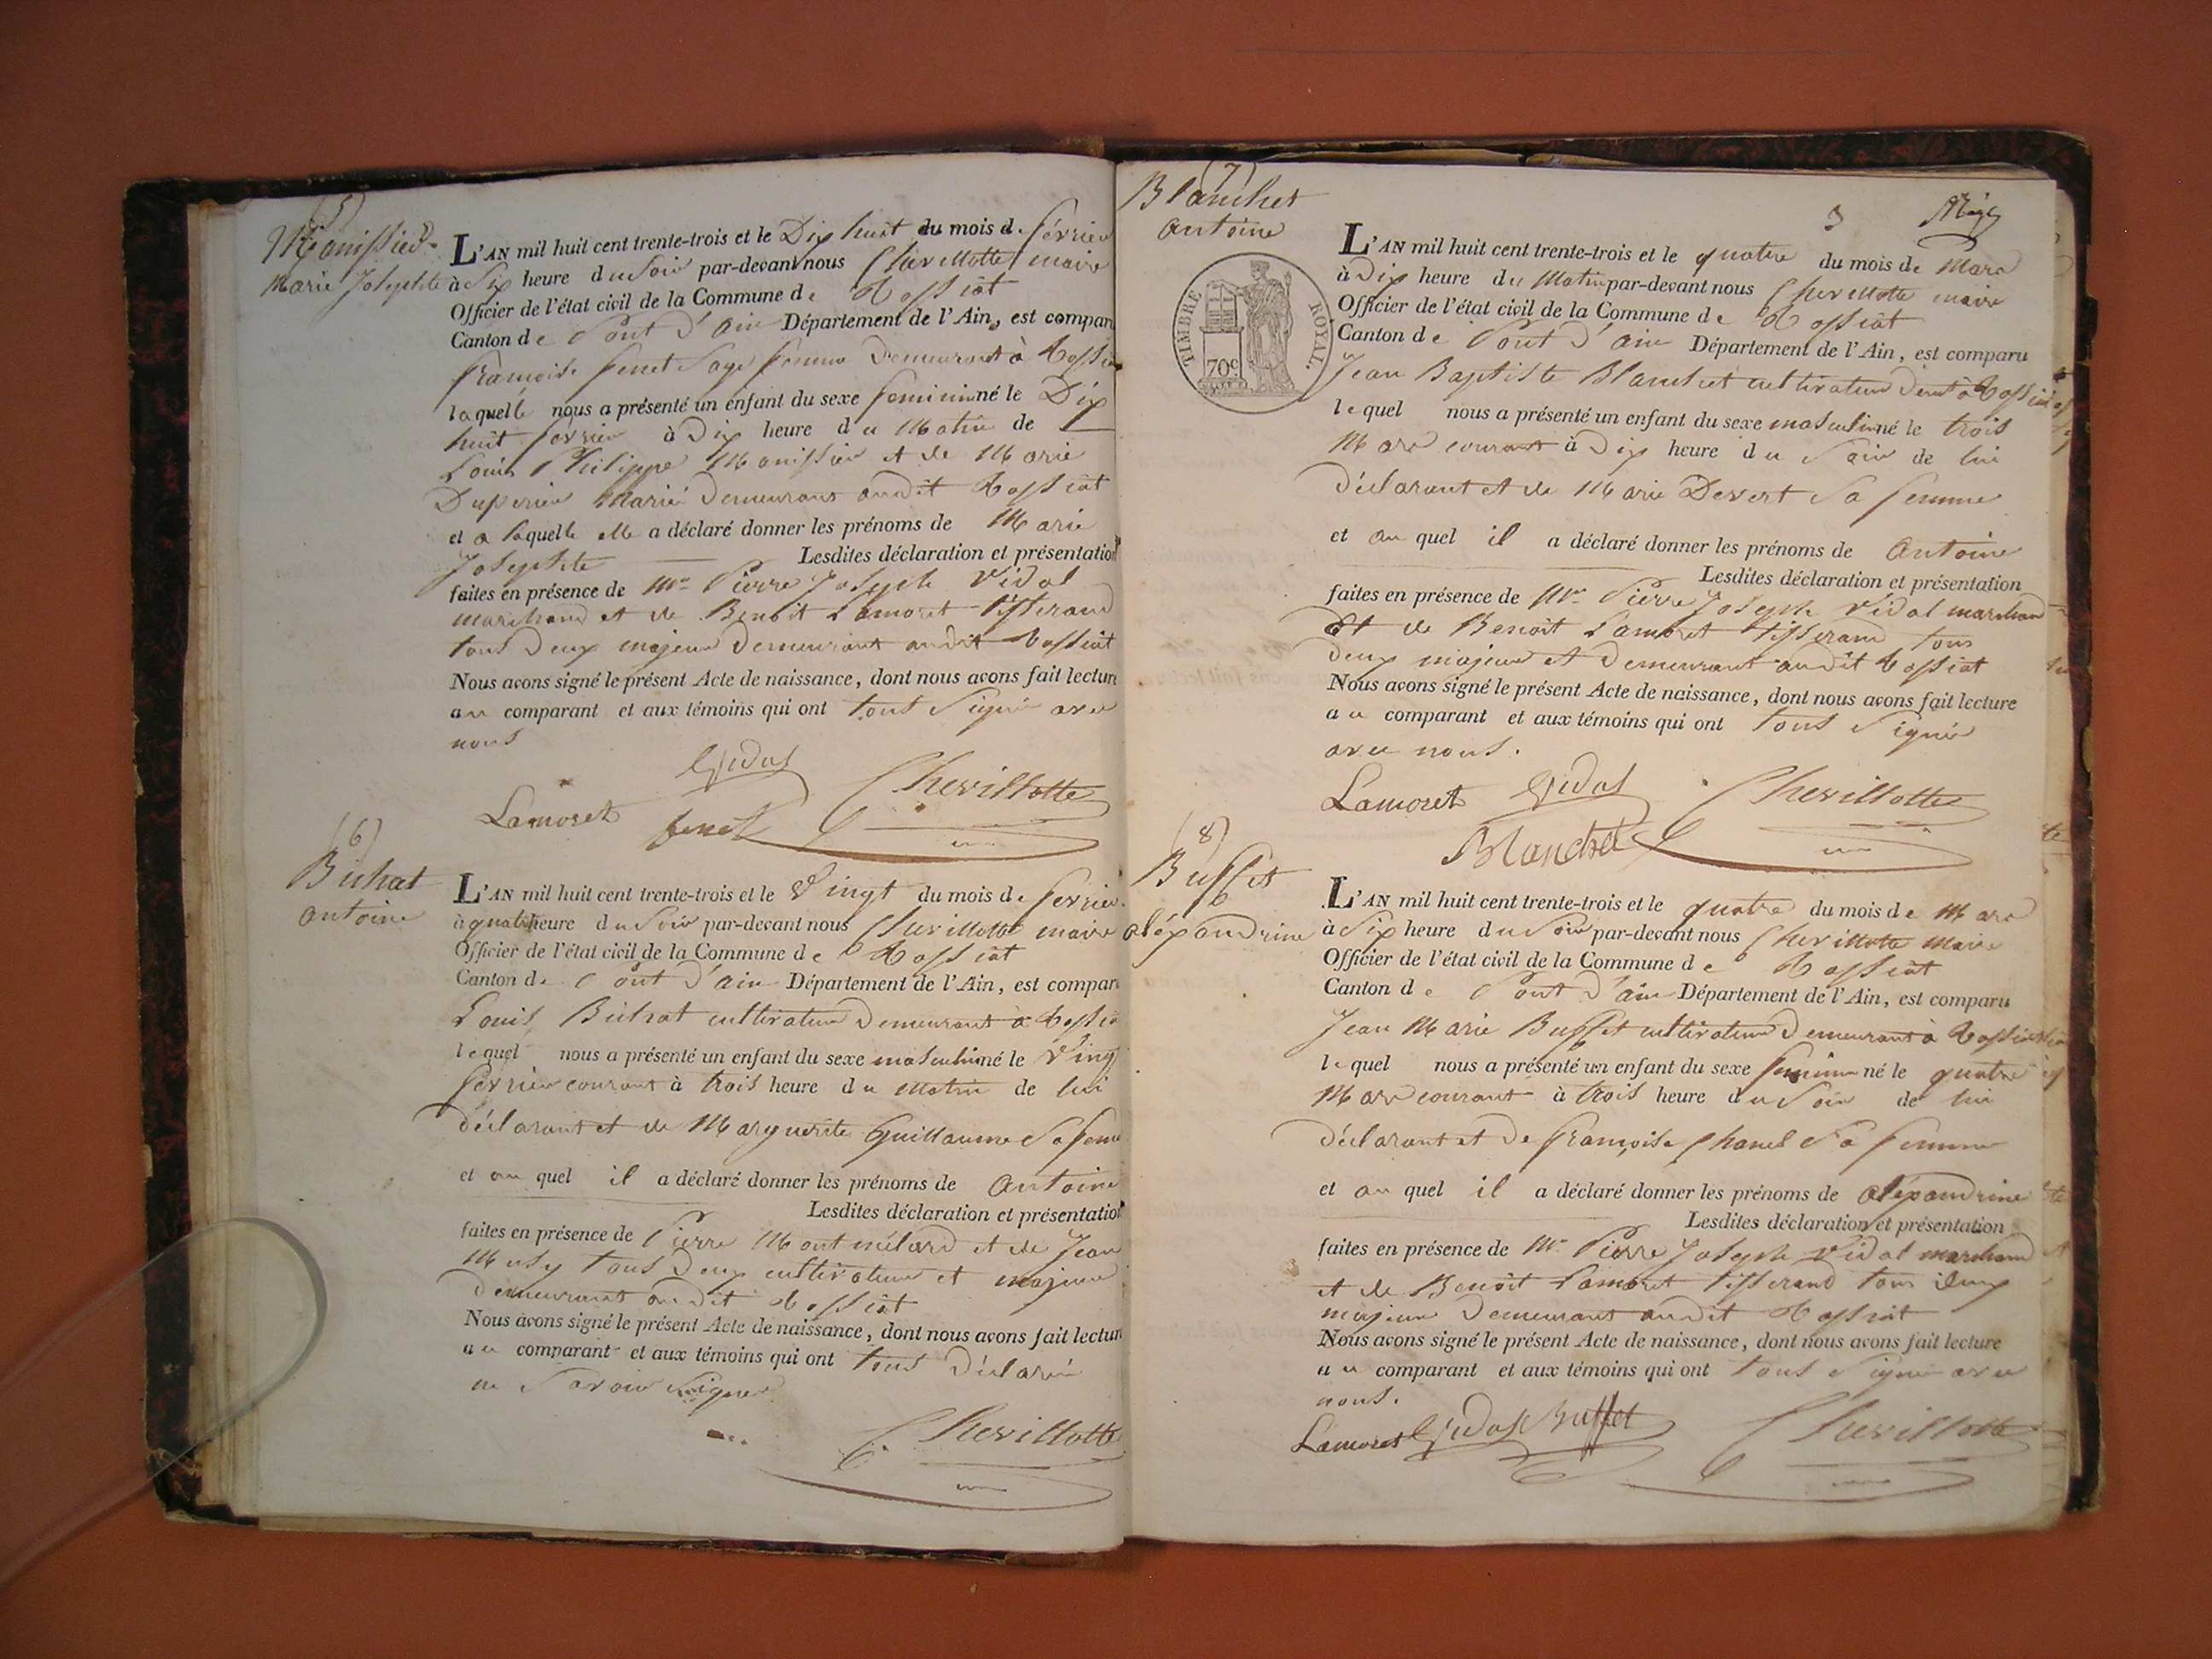 (5)
Manissier
Marie Josephte
L'AN mil huit cent trente-trois et le Dix huit du mois de février
à Six heure du Soir par-devant nous Chevillotte maire
Officier de l'état civil de la Commune de Tossiat
Canton de Pont d'ain Département de l'Ain, est compar
françoise fenet Sage femme Demeurant à Tossia
laquelle nous a présenté un enfant du sexe feminin né le Dix
huit février à Dix heure du Matin de
Louis Philippe Manissier et de Marie
Duperier Marié Demeurans audit Tossiat
et a laquelle elle a déclaré donner les prénoms de Marie
Josephte Lesdites déclaration et présentation
faites en présence de Mr Pierre Joseph Vidal
marchand et de Benoit Lamoret tisserand
tous Deux majeur Demeurant audit Tossiat
Nous avons signé le présent Acte de naissance, dont nous avons fait lectur
au comparant et aux témoins qui ont tout Signé avec
nous
Vidal
Lamoret fenet Chevillotte
(6)
Bichat
antoine
L'AN mil huit cent trente-trois et le Vingt du mois de fevrier
à quatre heure du Soir par-devant nous Chevillotte maire
Officier de l'état civil de la Commune de Tossiat
Canton de Pont d'ain Département de l'Ain, est compar
Louis Bichat cultivateur Demeurant à Tossia
lequel nous a présenté un enfant du sexe masculin né le Vingt
fevrier courant à trois heure du Matin de lui
déclarant et de Marguerite Guillaume Sa fem
et au quel il a déclaré donner les prénoms de antoine
Lesdites déclaration et présentation
faites en présence de Pierre Montmélard et de Jean
Musy tous Deux cultivateur et majeur
Demeurant audit Tossiat
Nous avons signé le présent Acte de naissance, dont nous avons fait lectur
au comparant et aux témoins qui ont tous Déclaré
ne Savoir Signer
Chevillotte
(7)
Blanchet
antoine
3
TIMBRE ROYAL
70c
L'AN mil huit cent trente-trois et le quatre du mois de Mars
à Dix heure du Matin par-devant nous Chevillotte maire
Officier de l'état civil de la Commune de Tossiat
Canton de Pont d'ain Département de l'Ain, est comparu
Jean Baptiste Blanchet cultivateur demt à Tossiat
lequel nous a présenté un enfant du sexe masculin né le trois
Mars courant à Dix heure du Soir de lui
déclarant et de Marie Devert Sa femme
et au quel il a déclaré donner les prénoms de Antoine
Lesdites déclaration et présentation
faites en présence de Mr Pierre Joseph Vidal marchand
et de Benoit Lamoret tisserand tous
Deux majeur et Demeurant audit Tossiat
Nous avons signé le présent Acte de naissance, dont nous avons fait lecture
au comparant et aux témoins qui ont tous Signé
avec nous.
Lamoret Vidal Chevillotte
Blanchet
(8)
Buffet
aléxandrine
L'AN mil huit cent trente-trois et le quatre du mois de Mars
à Six heure du Soir par-devant nous Chevillotte Maire
Officier de l'état civil de la Commune de Tossiat
Canton de Pont d'ain Département de l'Ain, est comparu
Jean Marie Buffet cultivateur Demeurant à Tossiat
lequel nous a présenté un enfant du sexe feminin né le quatre
Mars courant à trois heure du Soir de lui
déclarant et De françoise Chanel Sa femme
et au quel il a déclaré donner les prénoms de aléxandrine
Lesdites déclaration et présentation
faites en présence de Mr Pierre Joseph Vidal marchand
et de Benoit Lamoret tisserand tous deux
majeur Demeurant audit Tossiat
Nous avons signé le présent Acte de naissance, dont nous avons fait lecture
au comparant et aux témoins qui ont tous Signé avec
nous.
Lamoret Vidal Buffet Chevillotte